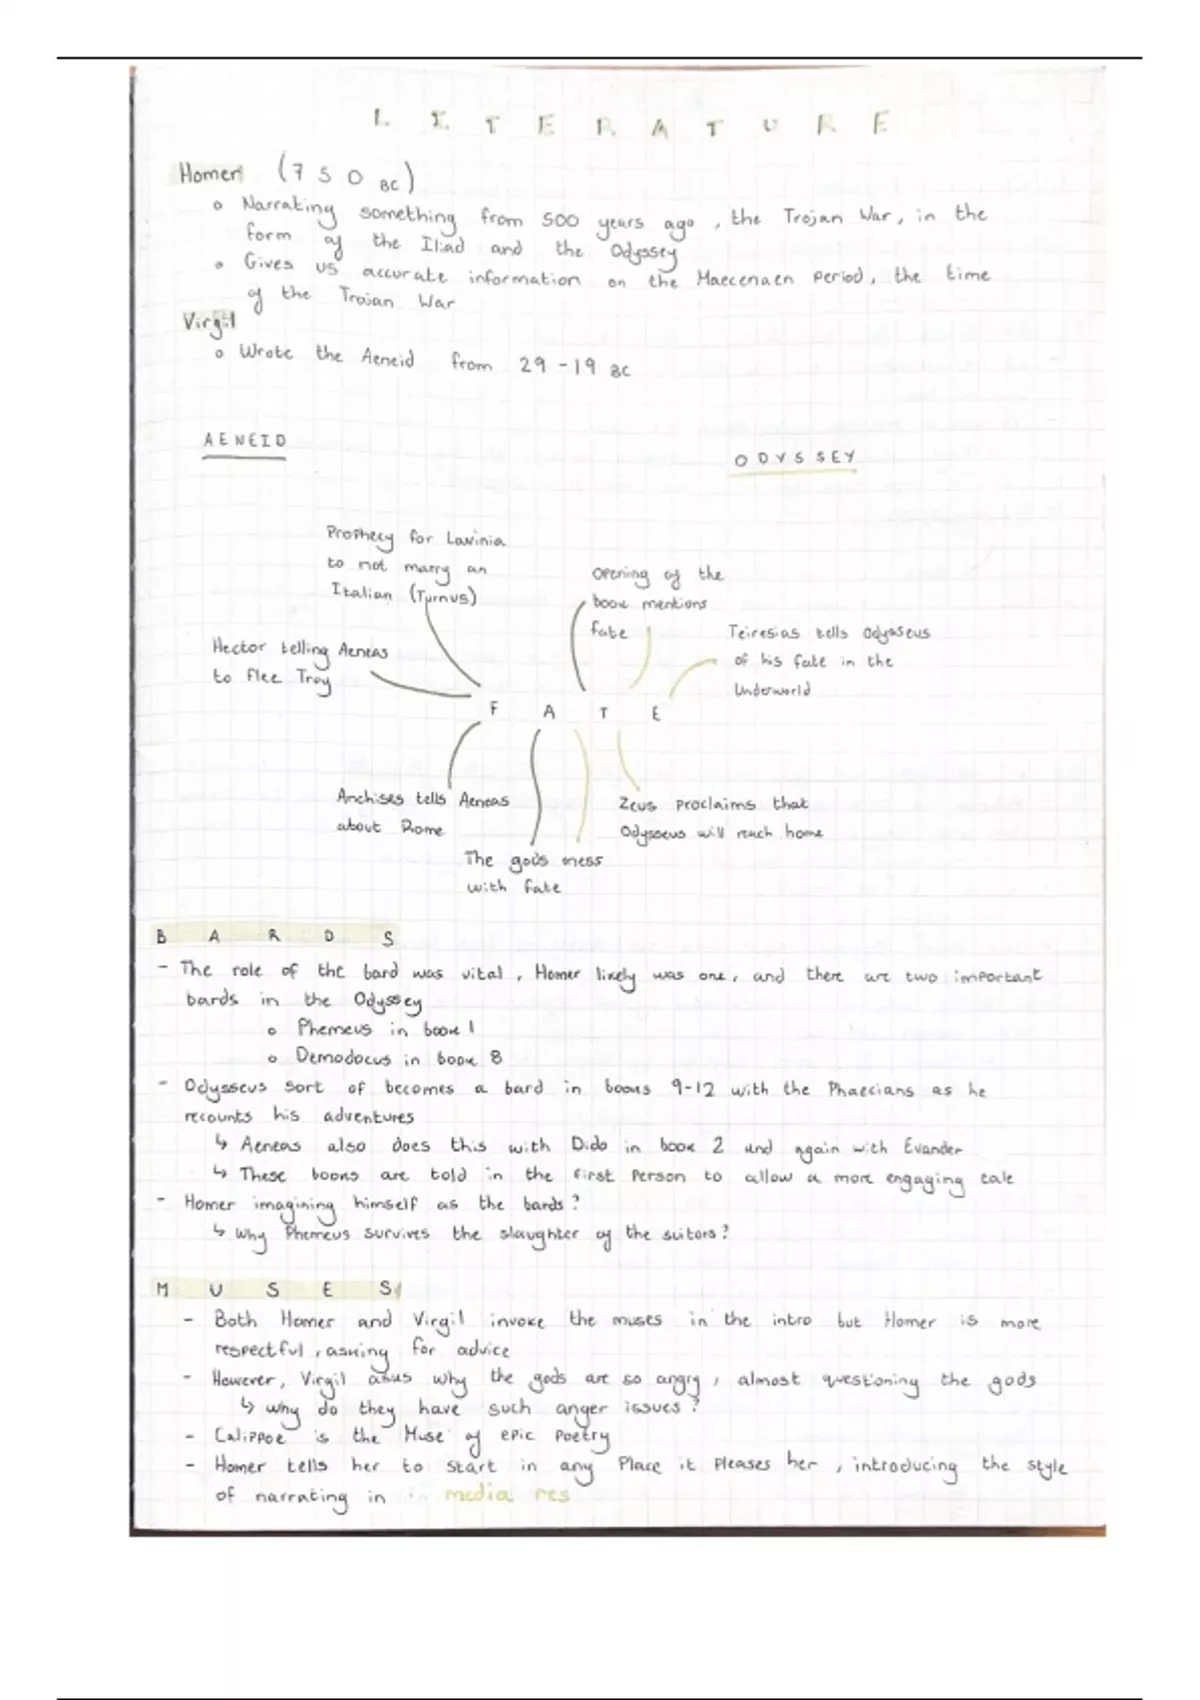 LITERATURE
Homer (750 BC)
o Narrating something from 500 years ago, the Trojan War, in the
form of the Iliad and the Odyssey
o Gives us accurate information on the Maecenaen period, the time
of the Trojan War
Virgil
o Wrote the Aeneid from 29-19 BC
AENEID
ODYSSEY
Prophecy for Lavinia
to not marry an
Italian (Turnus)
Opening of the
book mentions
fate
Teiresias tells Odysseus
of his fate in the
Underworld
Hector telling Aeneas
to flee Troy
FATE
Anchises tells Aeneas
about Rome
Zeus proclaims that
Odysseus will reach home
The gods mess
with fate
BARDS
- The role of the bard was vital, Homer likely was one, and there are two important
bards in the Odyssey
o Phemeus in book 1
o Demodocus in book 8
- Odysseus sort of becomes a bard in books 9-12 with the Phaecians as he
recounts his adventures
↳ Aeneas also does this with Dido in book 2 and again with Evander
↳ These books are told in the first person to allow a more engaging tale
- Homer imagining himself as the bards?
↳ Why Phemeus survives the slaughter of the suitors?
MUSES
- Both Homer and Virgil invoke the muses in the intro but Homer is more
respectful, asking for advice
- However, Virgil asks why the gods are so angry, almost questioning the gods
↳ why do they have such anger issues?
- Calippoe is the Muse of epic poetry
- Homer tells her to start in any place it pleases her, introducing the style
of narrating in in media res